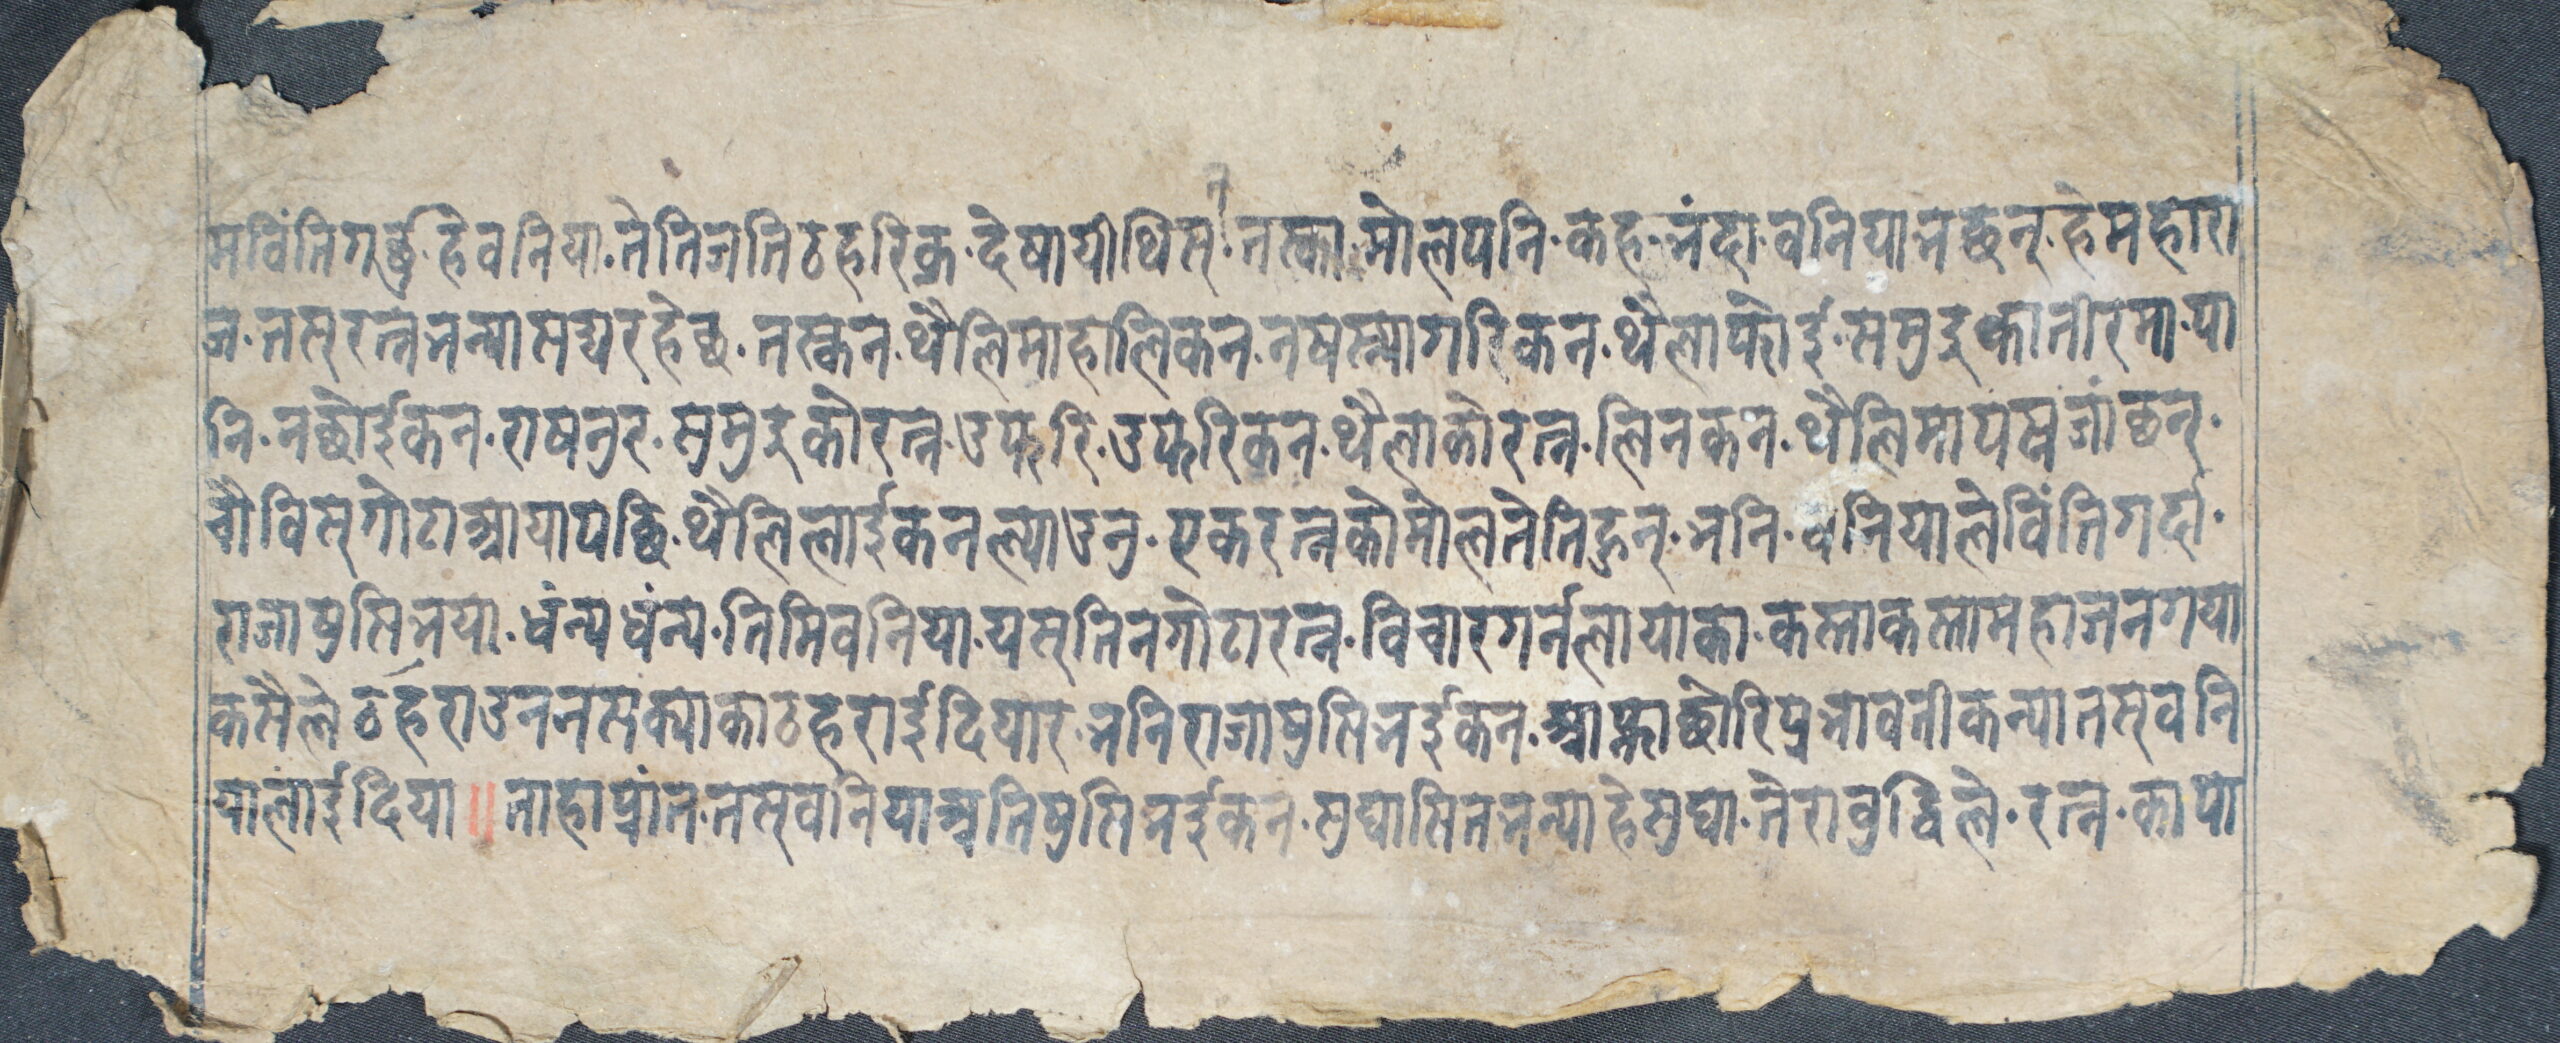 मविंतिगर्छु.हेवनिया.तेतिजतिठहरिक्र.देषायीथिस्.तस्का.मोलपनि.कह.भंदा.वनियाभछन्.हेमहारा
ज.तस्रत्नभन्यासद्यरहेछ.तस्कन.थैलिमाहालिकन.नषस्न्यागरिकन.थैलाफोई.समुद्रकातीरमा.पा
नि.नछोईकन.राषनुर.समुद्रकोरत्न.उफ्रि.उफ्रिकन.थैलाकोरत्न.लिनकन.थैलिमापस्नजांछन्.
चौविस्गोटाआयापछि.थैलिलाईकनल्याउनु.एकरत्नकोमोलतेतिहुन्.भनि.वनियालेविंतिगर्दा.
राजाषुसिभया.धंन्यधंन्य.तिमिवनिया.यस्तिनगोटारत्न.विचारगर्नलायाका.कस्ताकस्तामहाजनगया
कसैलेठहराउननसक्याकाठहराईदियार.भनिराजाषुसिभईकन.आफ्नाछोरिप्रभावतीकन्यातस्वनि
यालाईदिया॥ताहाप्रांत.तस्वनियाअतिषुसिभईकन.सुघासितभन्याहेसुघा.तेरावुद्धिले.रत्न.कापो